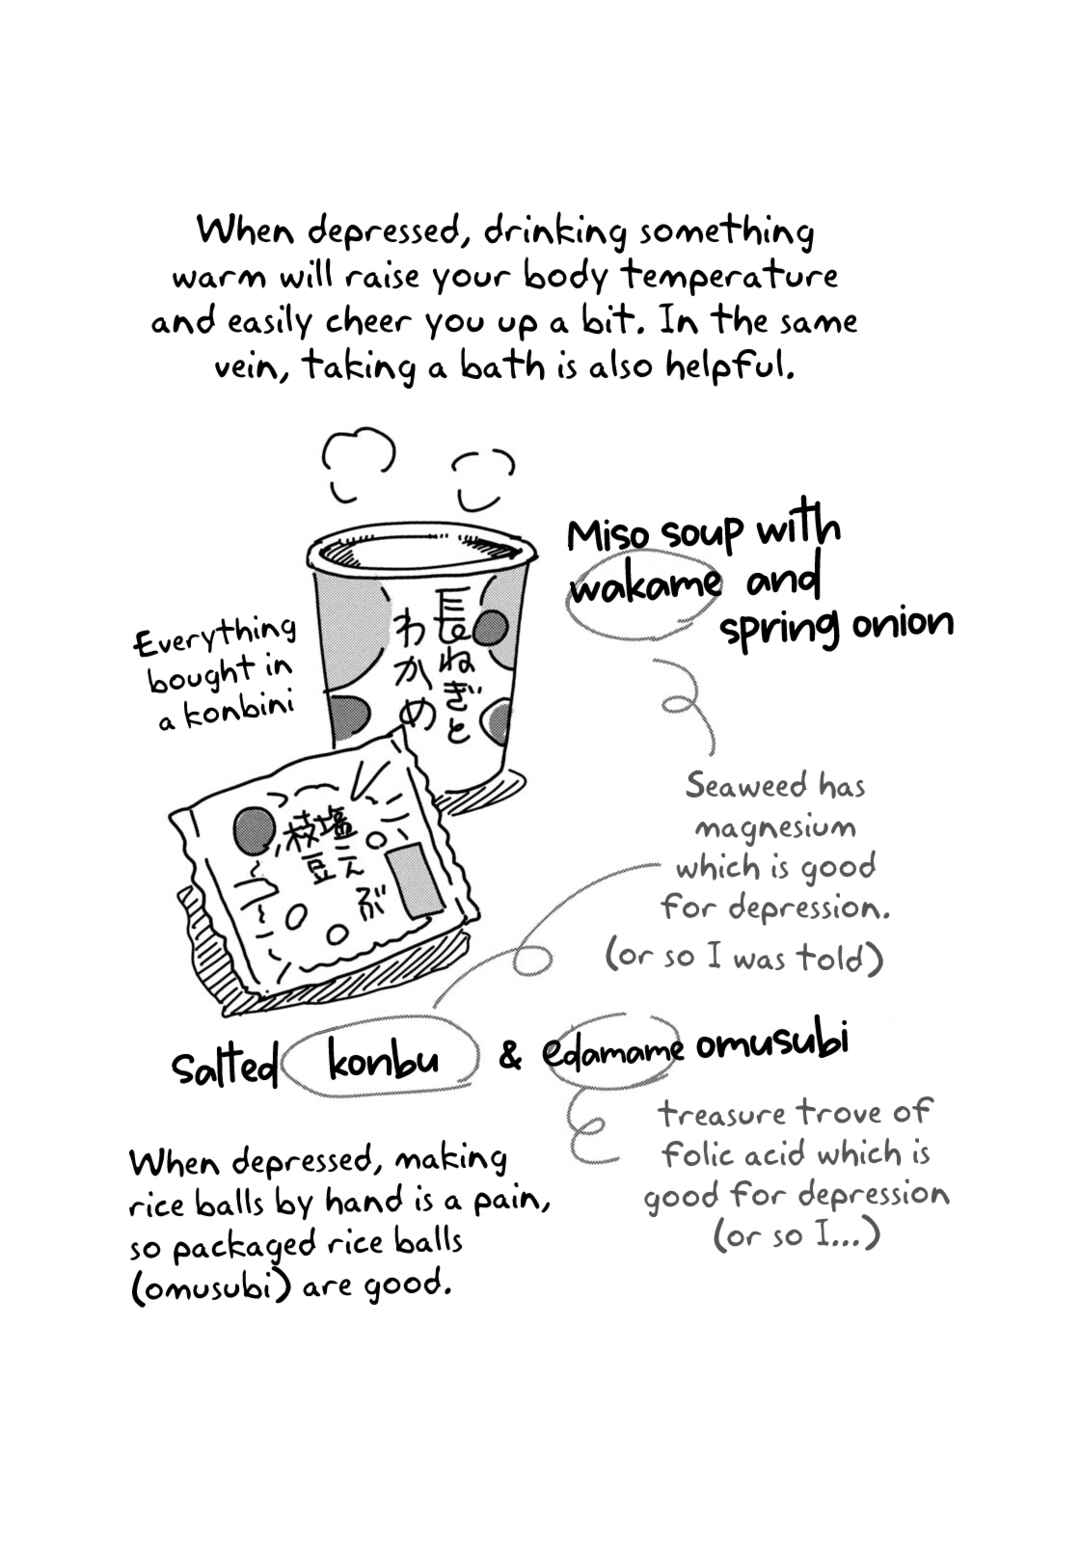 When depressed, drinking something
warm will raise your body temperature
and easily cheer you up a bit. In the same
vein, taking a bath is also helpful.
Miso soup with
wakame and
spring onion
Everything
bought in
a konbini
長ねぎと
わかめ
Seaweed has
magnesium
which is good
for depression.
(or so I was told)
塩こんぶ
枝豆
Salted konbu & edamame omusubi
treasure trove of
folic acid which is
good for depression
(or so I...)
When depressed, making
rice balls by hand is a pain,
so packaged rice balls
(omusubi) are good.